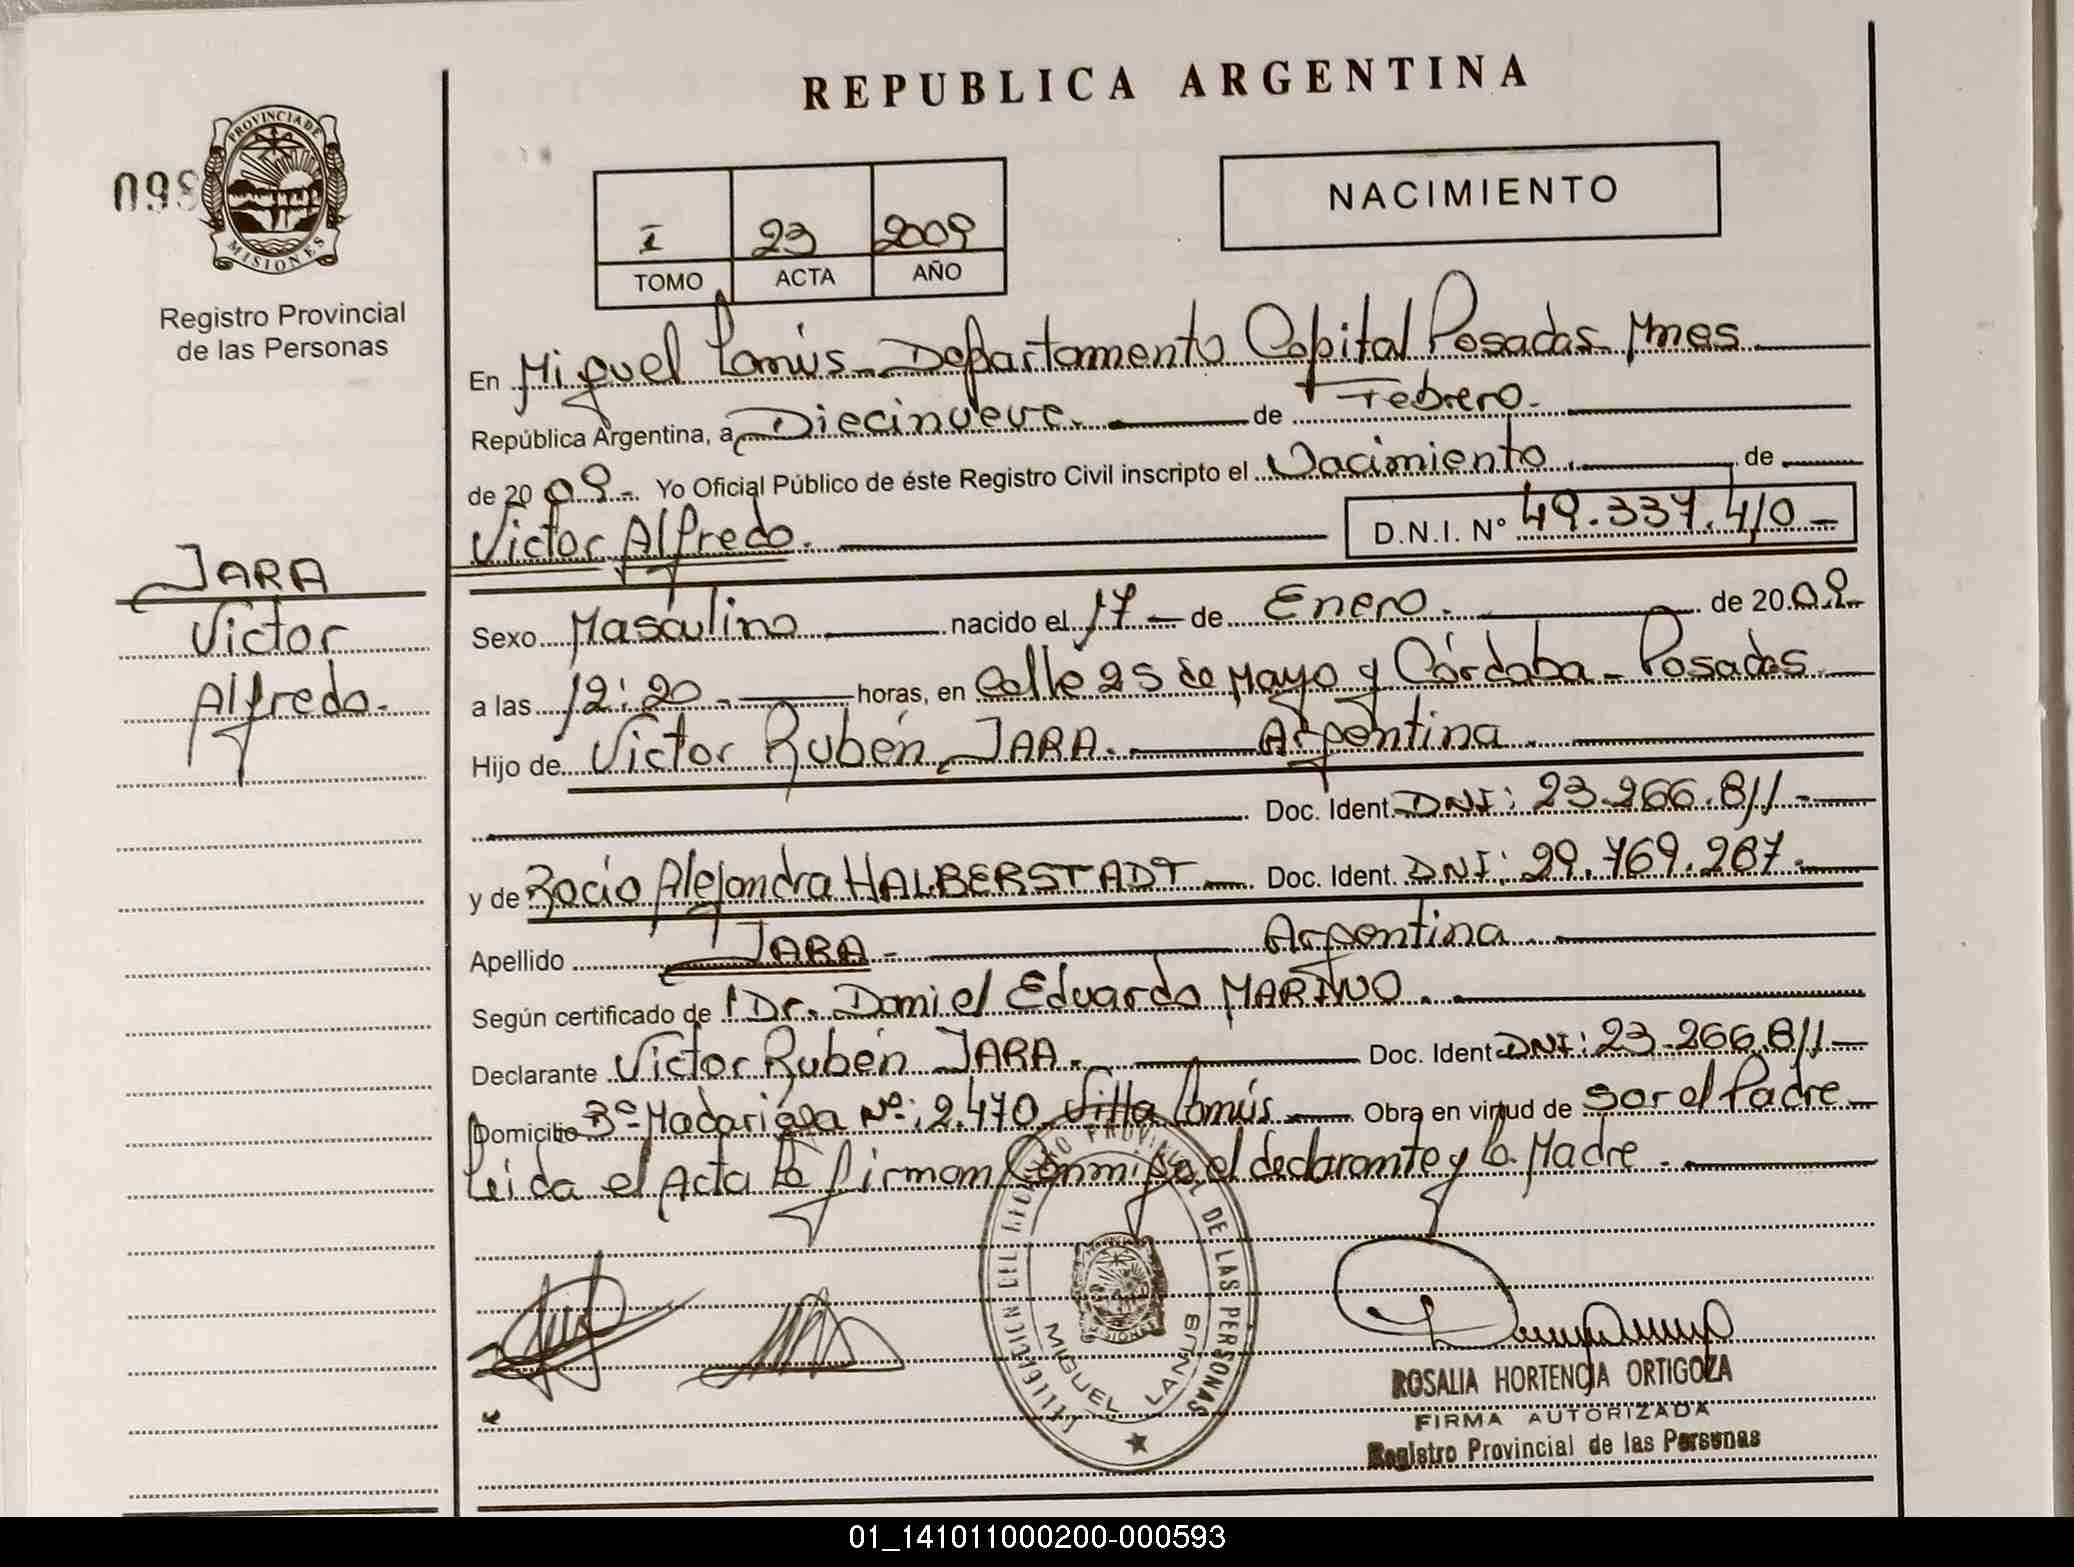 REPUBLICA ARGENTINA
098
PROVINCIA DE
MISIONES
Registro Provincial
de las Personas
I 23 2009
TOMO ACTA AÑO
NACIMIENTO
En Miguel Lanús - Departamento Capital Posadas Mnes
República Argentina, a Diecinueve. de Febrero.
de 20 09 -. Yo Oficial Público de éste Registro Civil inscripto el Nacimiento . de
Victor Alfredo. D.N.I. Nº 49.337.410 -
JARA
Victor
Alfredo.
Sexo Masculino nacido el 17 - de Enero. de 20 09
a las 12:20 horas, en Calle 25 de Mayo y Córdoba - Posadas
Hijo de Victor Rubén JARA. Argentina
Doc. Ident. DNI: 23.266.811 -
y de Rocio Alejandra HALBERSTADT Doc. Ident. DNI: 29.769.287.
Apellido JARA - Argentina
Según certificado de Dr. Daniel Eduardo MARINO
Declarante Victor Rubén JARA. Doc. Ident DNI: 23.266.811 -
Domicilio Bº Madariaga Nº: 2.470 Villa Lanús Obra en virtud de Ser el Padre
Leida el Acta la firman Conmigo el declarante y la Madre.
REGISTRO PROVINCIAL DE LAS PERSONAS
MIGUEL LANUS
ROSALIA HORTENCIA ORTIGOZA
FIRMA AUTORIZADA
Registro Provincial de las Personas
01_141011000200-000593